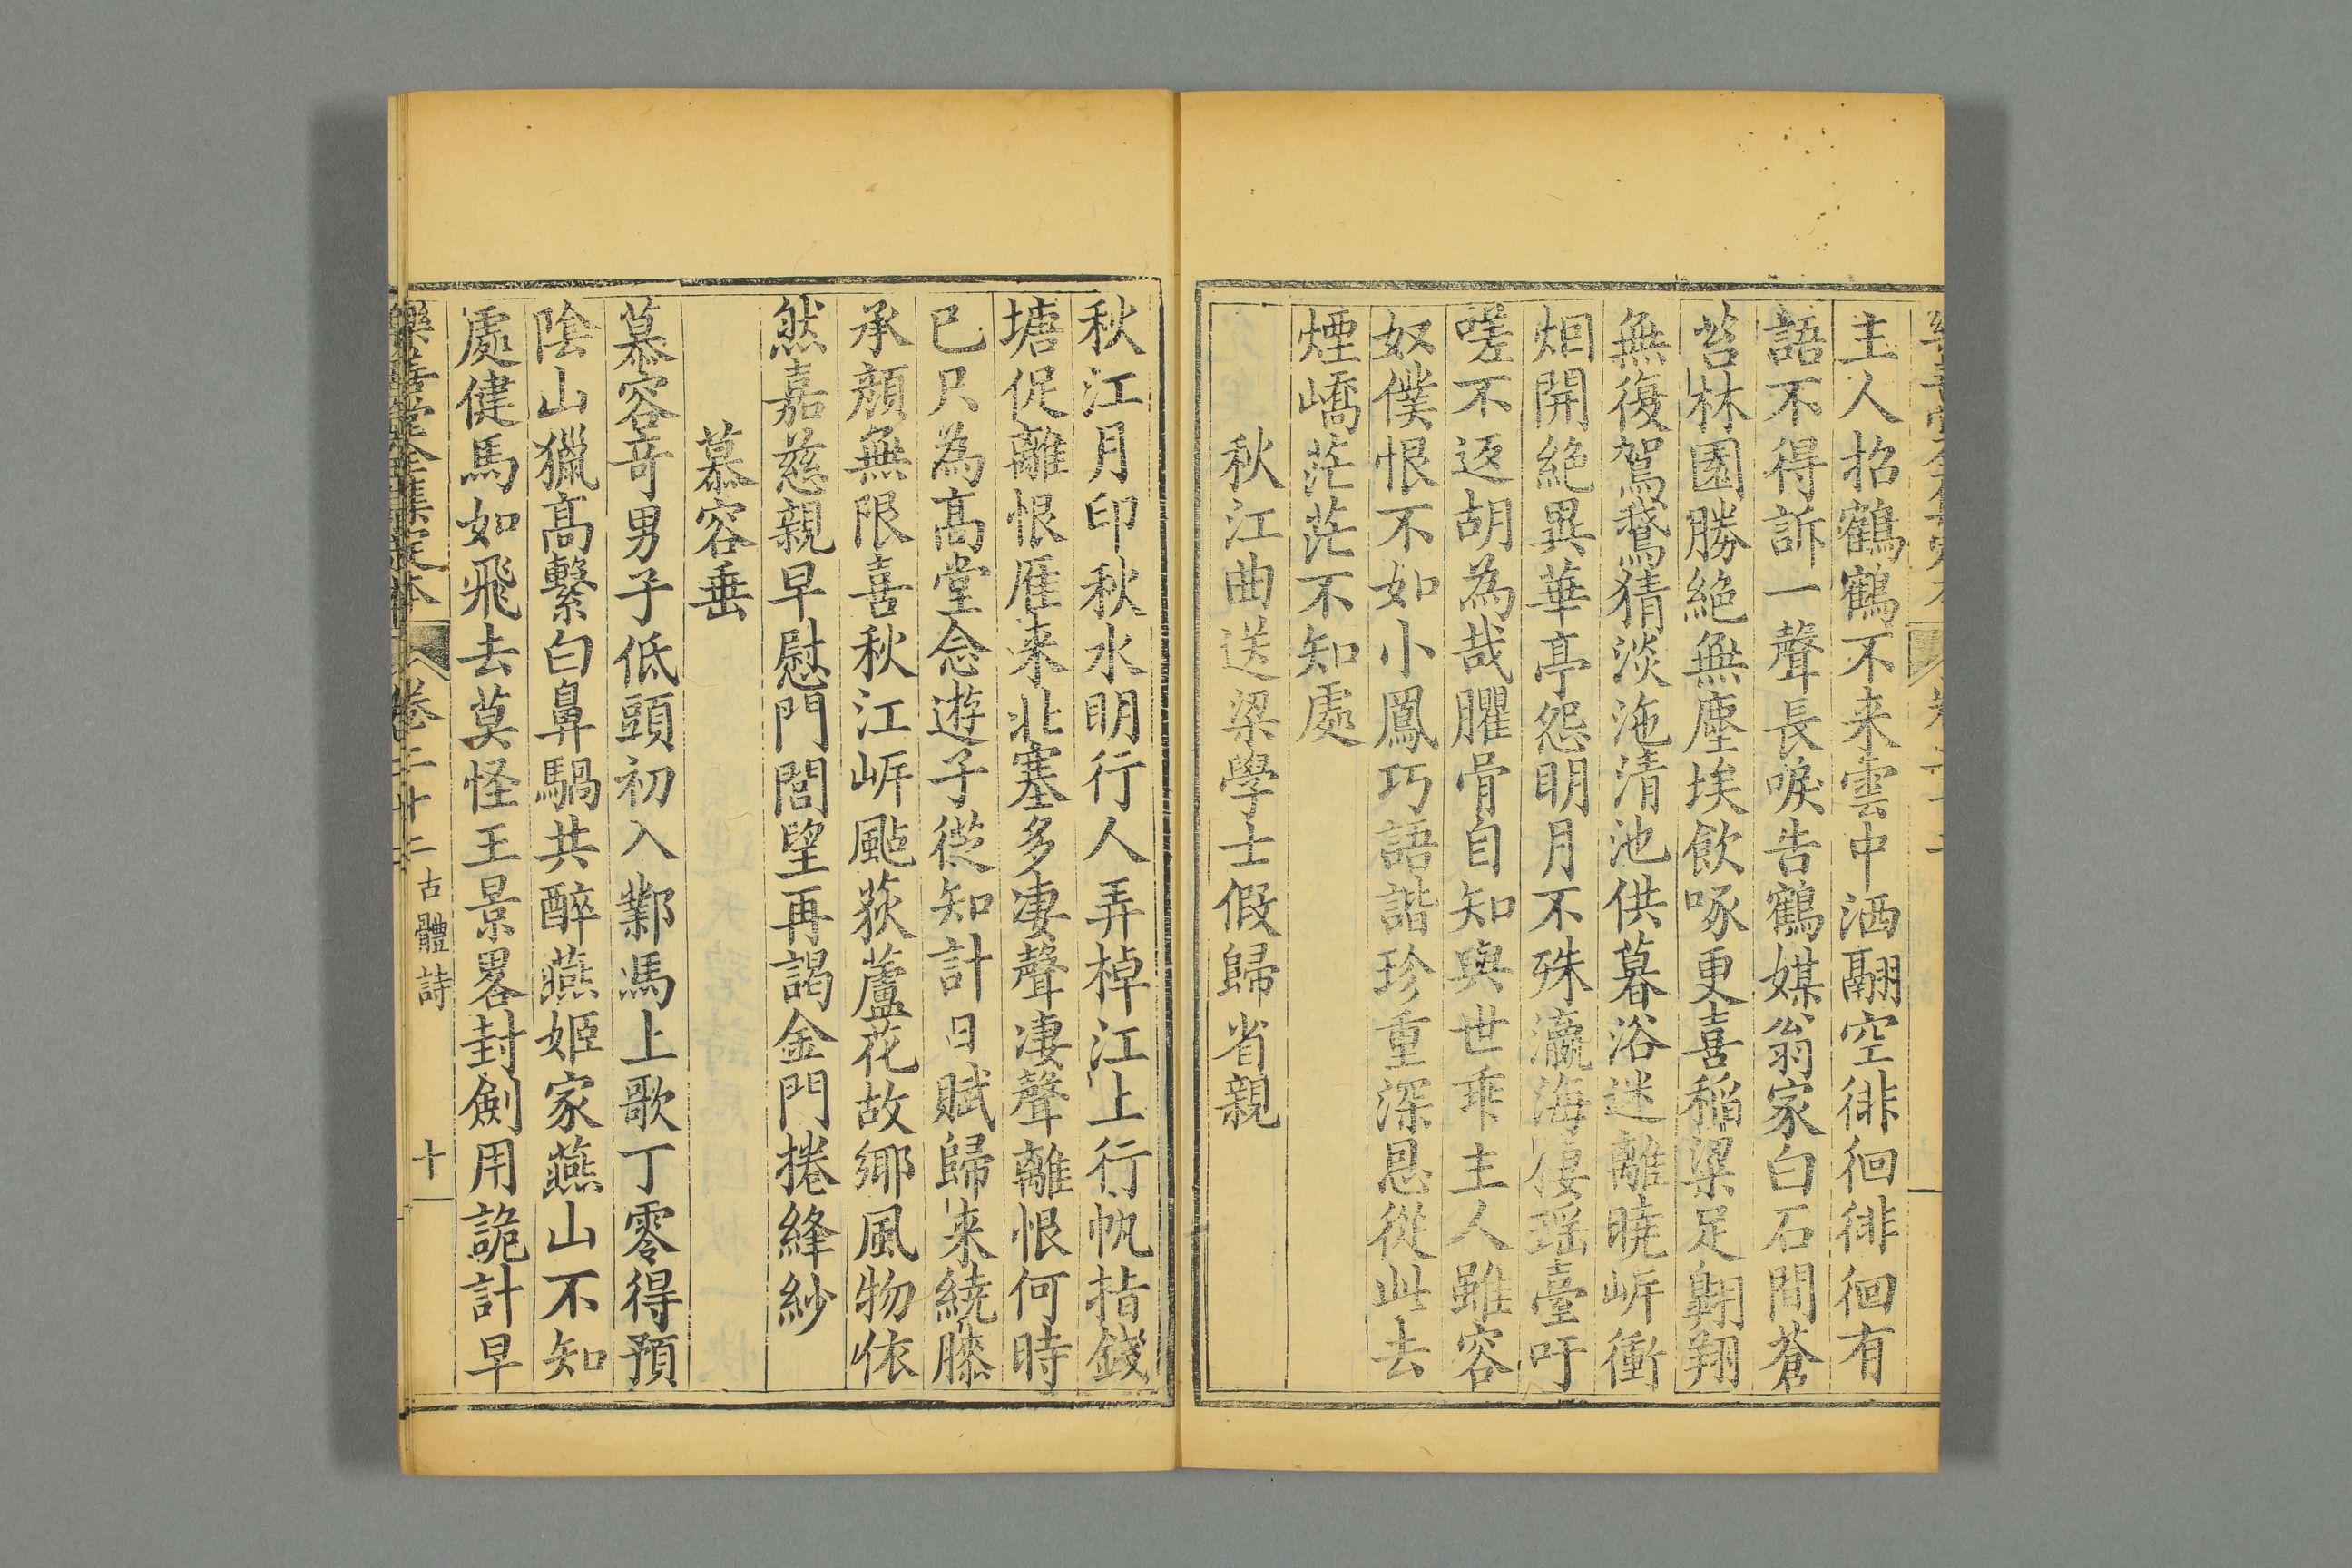 主人招鶴鶴不来雲中洒翮空徘徊徘徊有
語不得訴一聲長唳告鶴媒翁家白石間蒼
苔林園勝絶無塵埃飲啄更喜稲粱足翺翔
無復駕鵞猜淡沲清池供暮浴迷離曉㟁衝
烟開絶異華亭怨明月不殊瀛海棲瑶臺吁
嗟不返胡為哉臞骨自知與世乖主人雖容
奴僕恨不如小鳳巧語諧珍重深恩從此去
煙嶠茫茫不知處
秋江曲送梁學士假歸省親
秋江月印秋水明行人弄棹江上行帆指錢
塘促離恨雁来北塞多凄聲凄聲離恨何時
已只為高堂念遊子從知計日賦歸来繞膝
承顔無限喜秋江㟁颭荻蘆花故鄉風物依
然嘉慈親早慰門閭望再謁金門捲絳紗
慕容垂
慕容竒男子低頭初入鄴馮上歌丁零得預
陰山獵高繫白鼻騧共醉燕姬家燕山不知
處健馬如飛去莫怪王景畧封劍用詭計早
樂善堂全集定本 卷二十二 古體詩 十